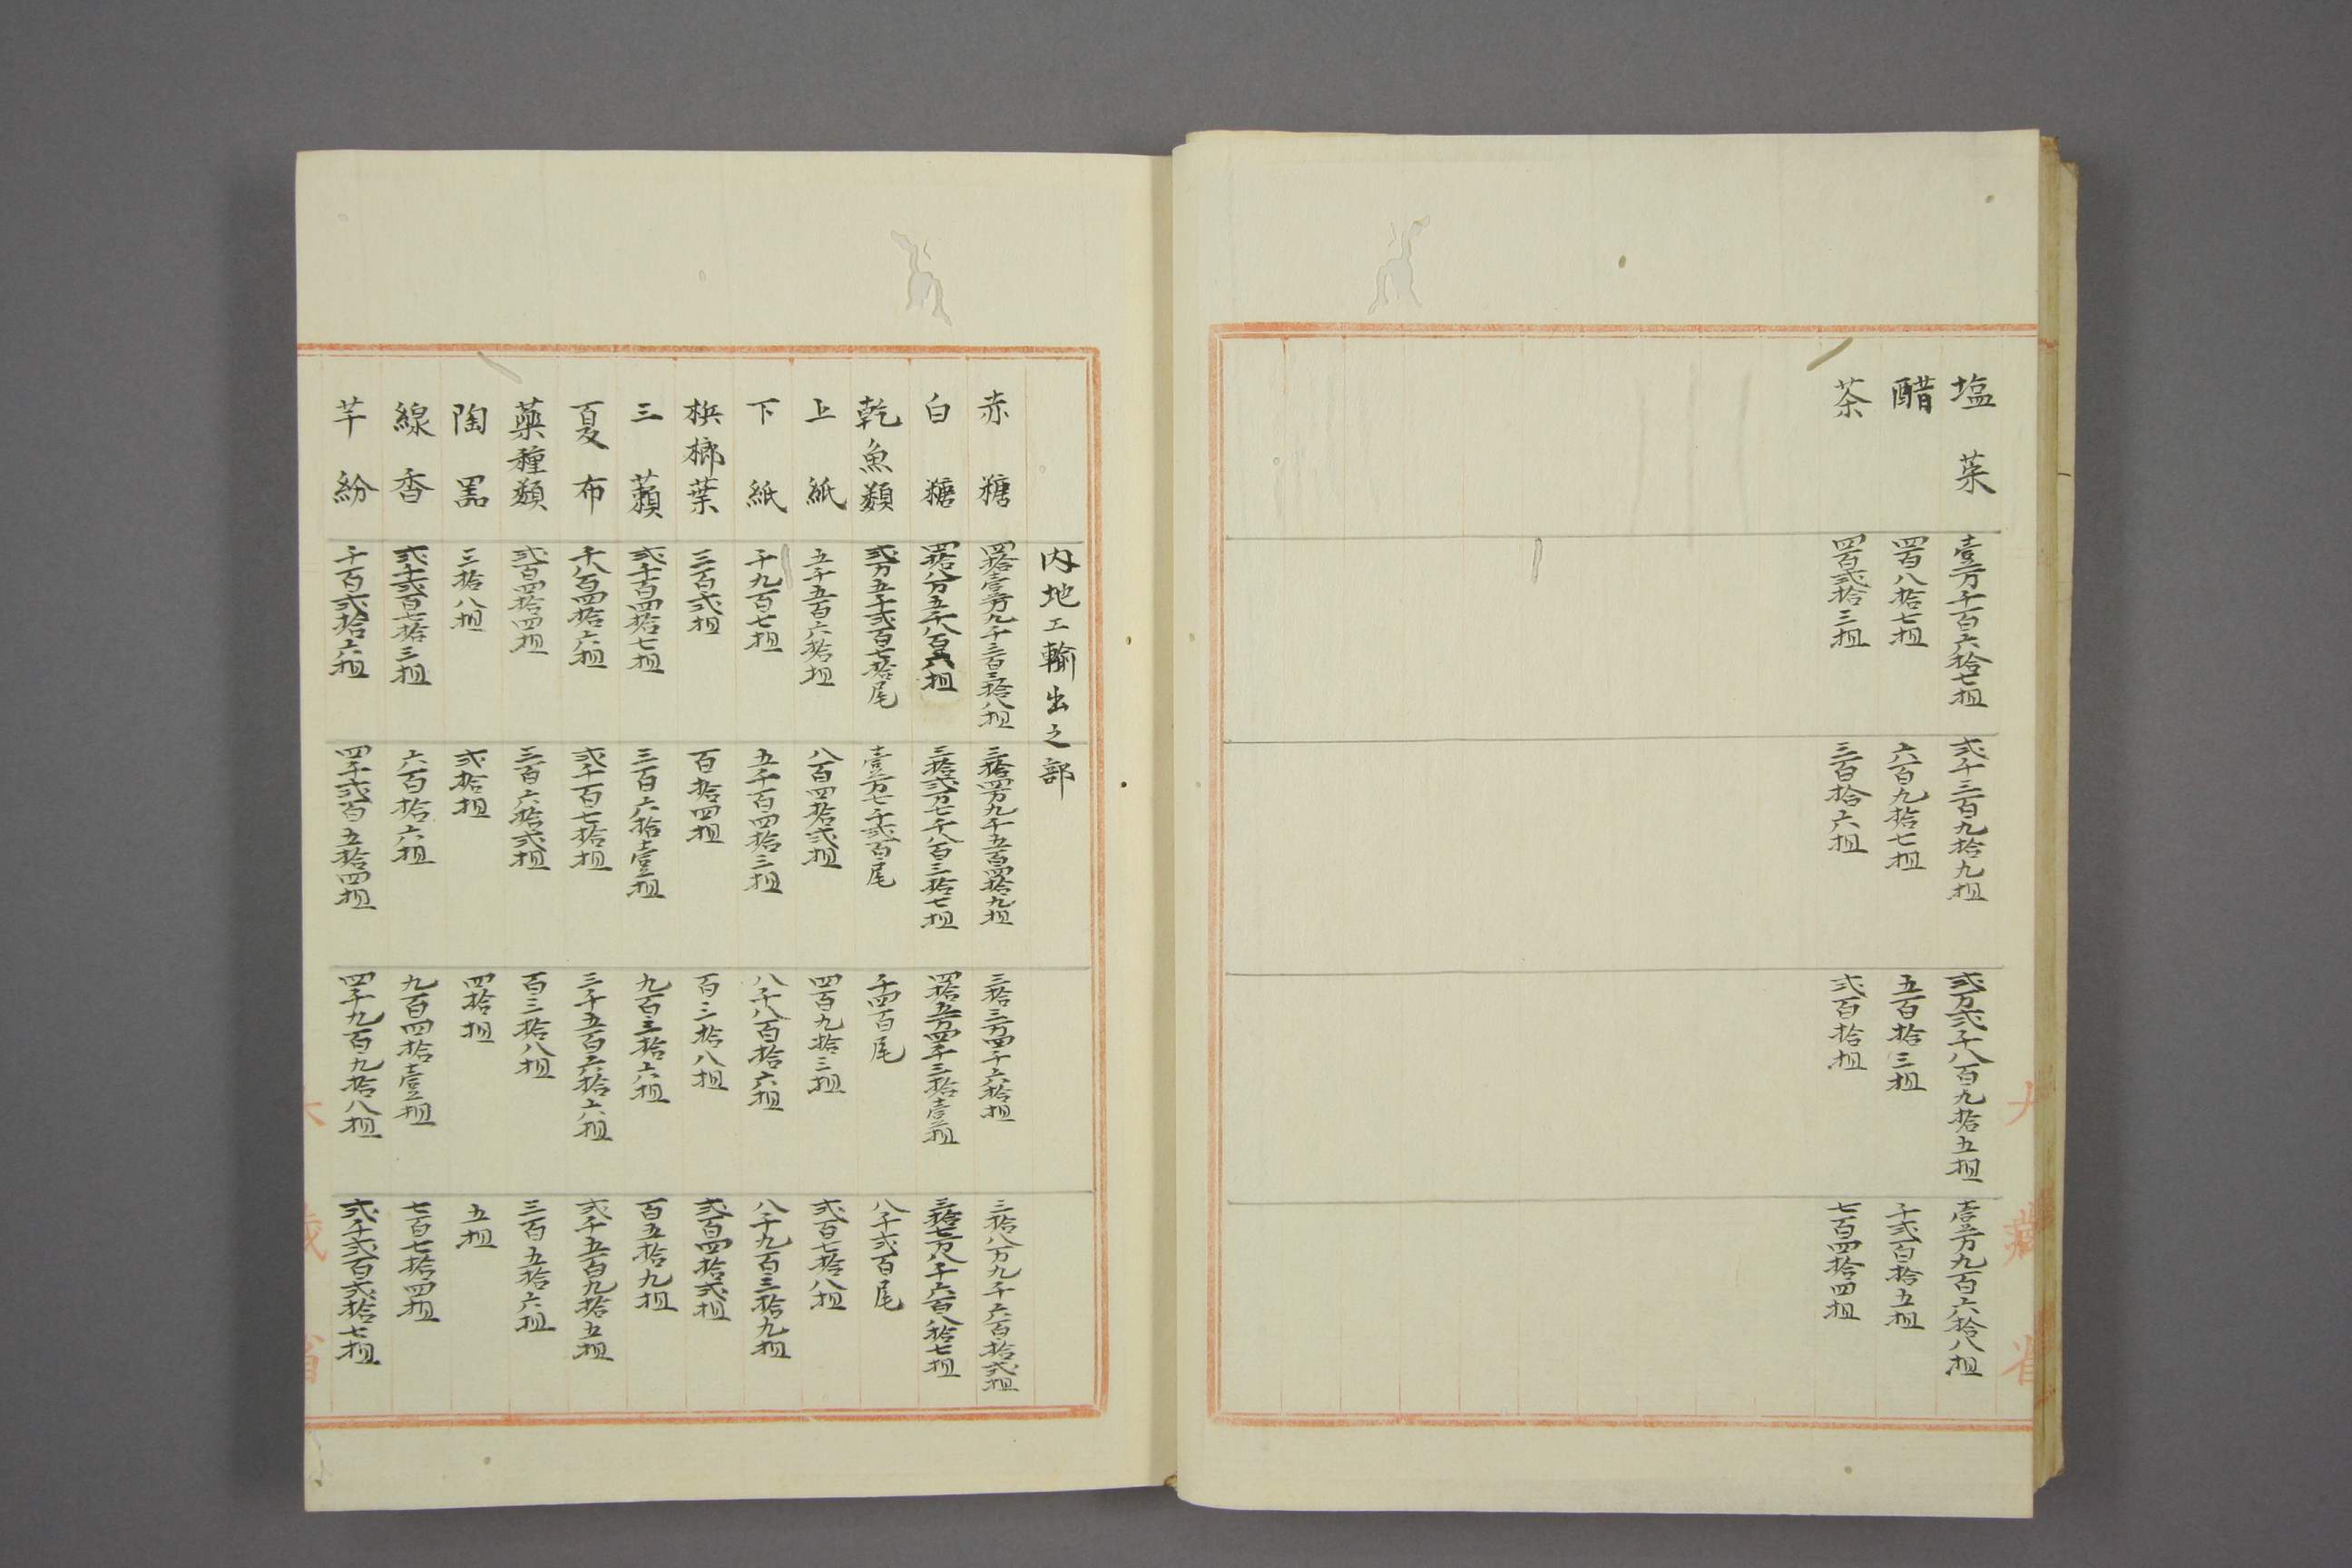 塩菜 壹万千百六拾七担 弐千三百九拾九担 弐万弐千八百九拾五担 壹万九百六拾八担
醋 四百八拾七担 六百九拾七担 五百拾三担 千弐百拾五担
茶 四百弐拾三担 三百拾六担 弐百拾担 七百四拾四担
大藏省
内地エ輸出之部
赤糖 四拾壹万九千三百三拾八担 三拾四万九千五百四拾九担 三拾三万四千六拾担 三拾八万九千六百拾弐担
白糖 四拾八万五千八百六担 三拾弐万七千八百三拾七担 四拾五万四千三拾壹担 三拾七万八千六百八拾七担
乾魚類 弐万五千弐百七拾尾 壹万七千弐百尾 千四百尾 八千弐百尾
上紙 五千五百六拾担 八百四拾弐担 四百九拾三担 弐百七拾八担
下紙 千九百七担 五千百四拾三担 八千八百拾六担 八千九百三拾九担
梹榔葉 三百弐担 百拾四担 百三拾八担 弐百四拾弐担
三籟 弐千百四拾七担 三百六拾壹担 九百三拾六担 百五拾九担
夏布 千八百四拾六担 弐千百七拾担 三千五百六拾六担 弐千五百九拾五担
藥種類 弐百四拾四担 三百六拾弐担 百三拾八担 三百五拾六担
陶器 三拾八担 弐拾担 四拾担 五担
線香 弐千弐百七拾三担 六百拾六担 九百四拾壹担 七百七拾四担
芊紛 千百弐拾六担 四千弐百五拾四担 四千九百九拾八担 弐千弐百弐拾七担